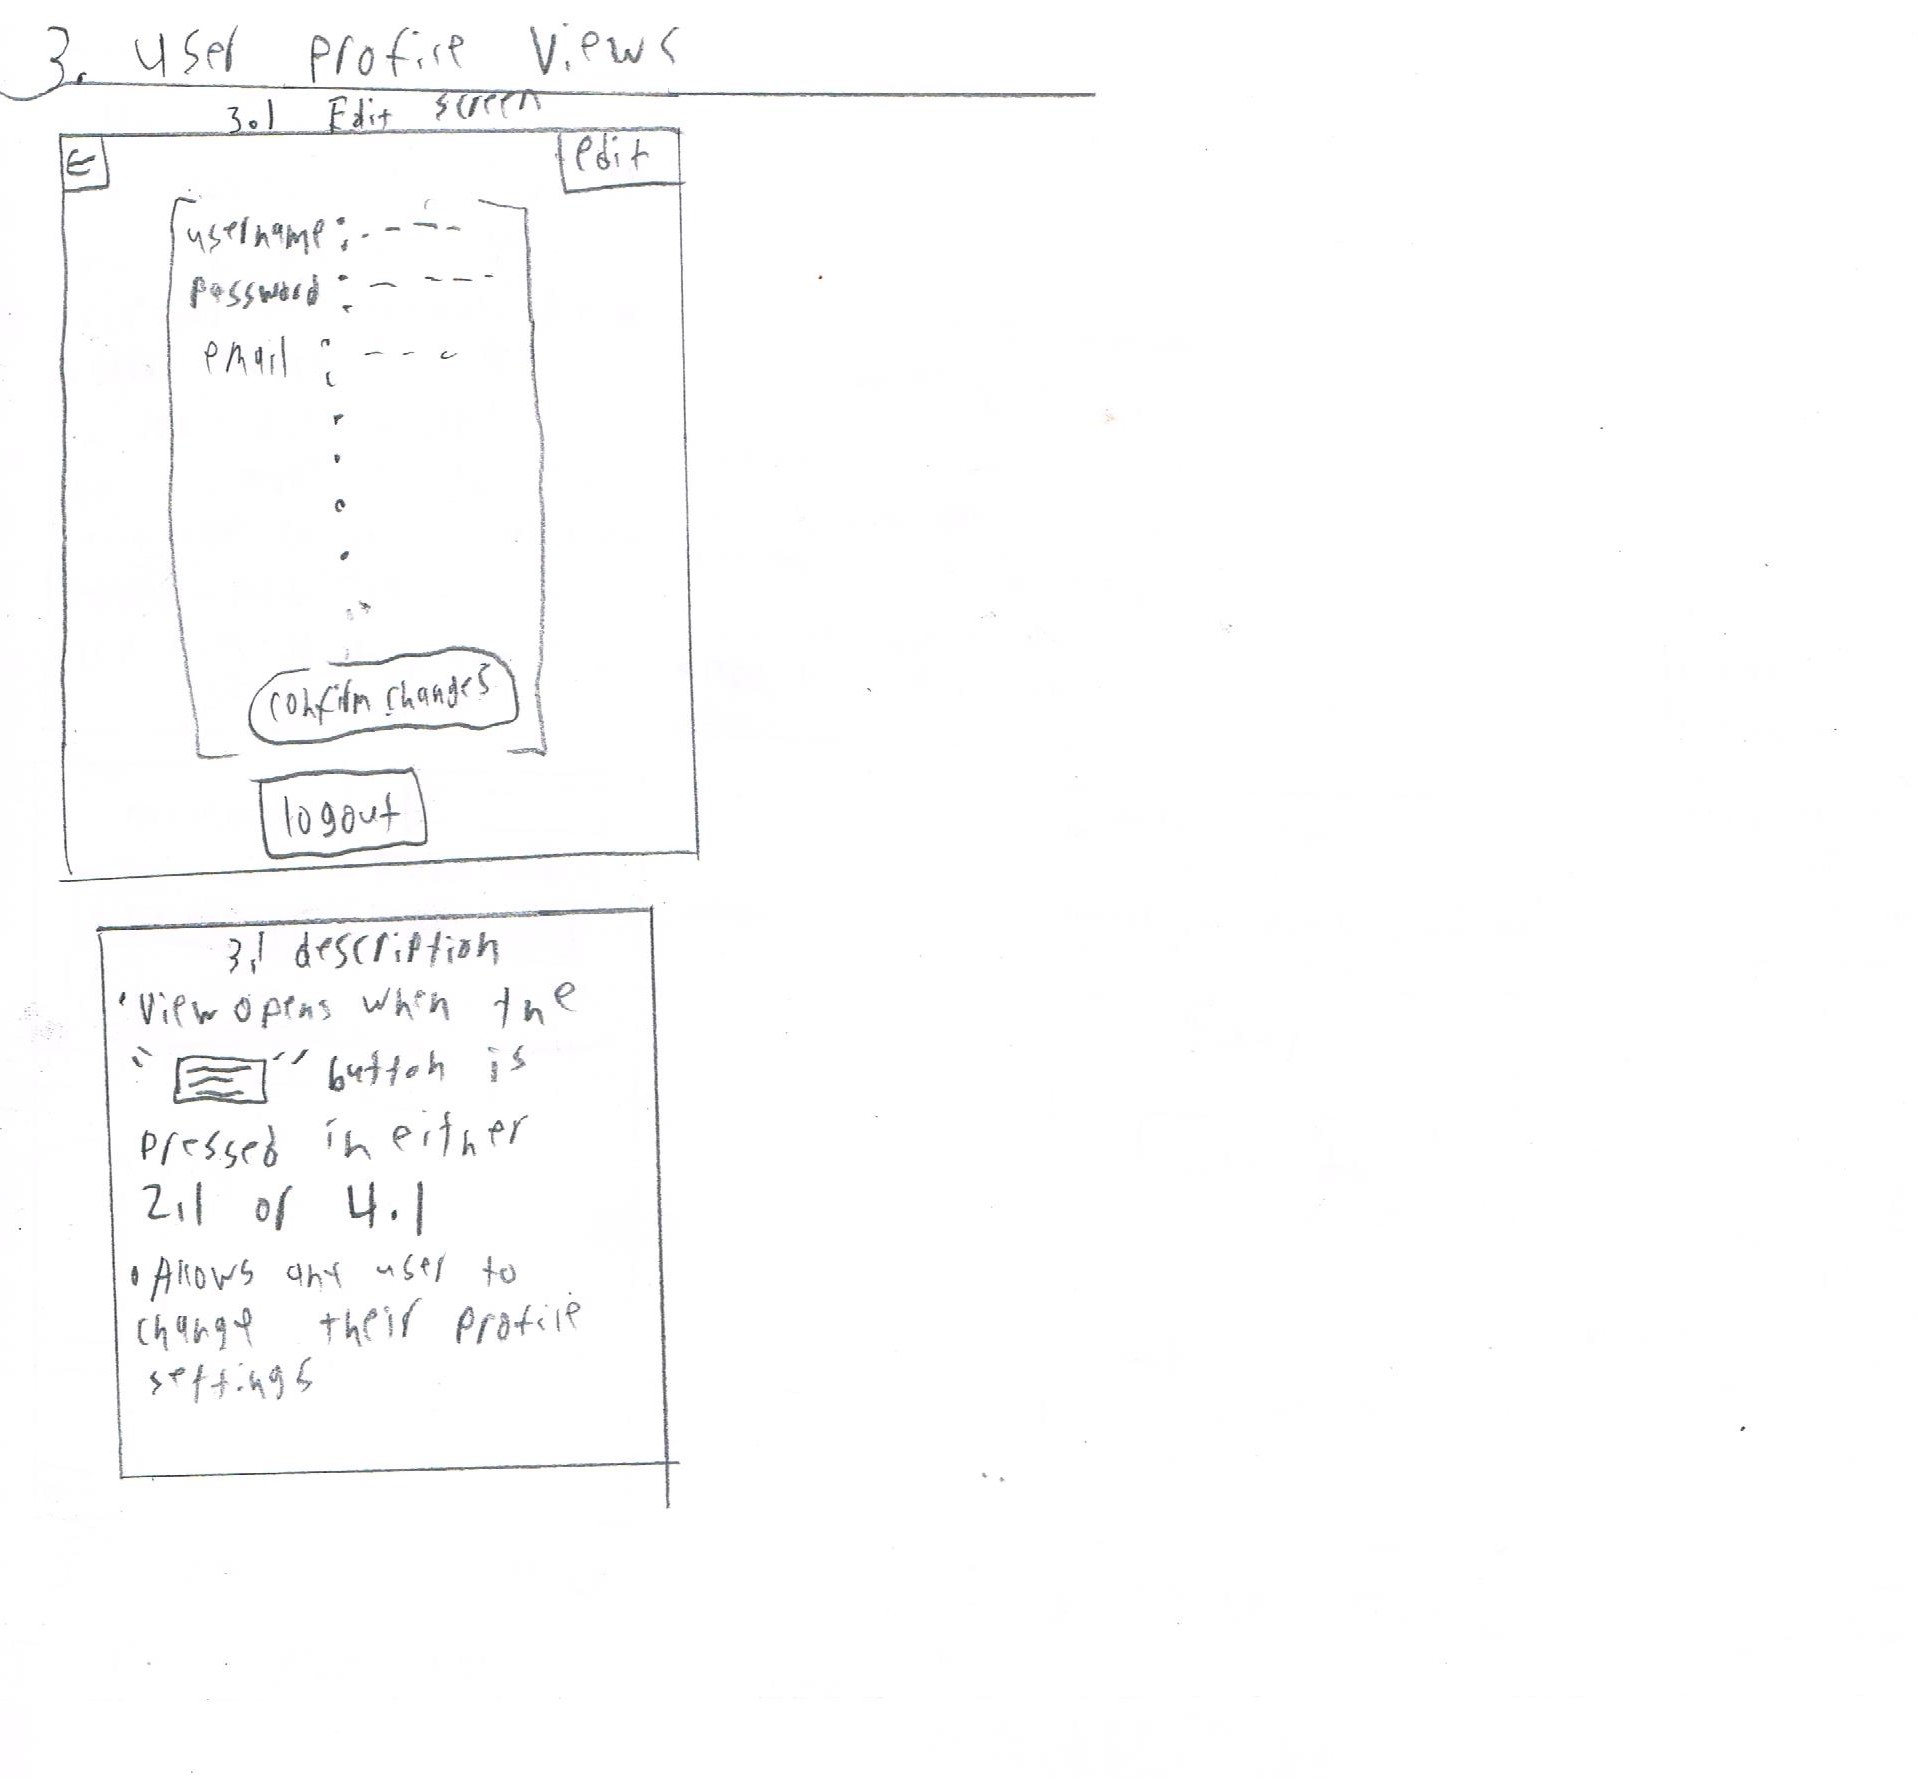 3. User profile Views
3.1 Edit screen
edit
username: - - - -
password: - - - -
email : - - -
confirm changes
logout
3.1 description
• View opens when the
" " button is
pressed in either
2.1 or 4.1
• Allows any user to
change their profile
settings